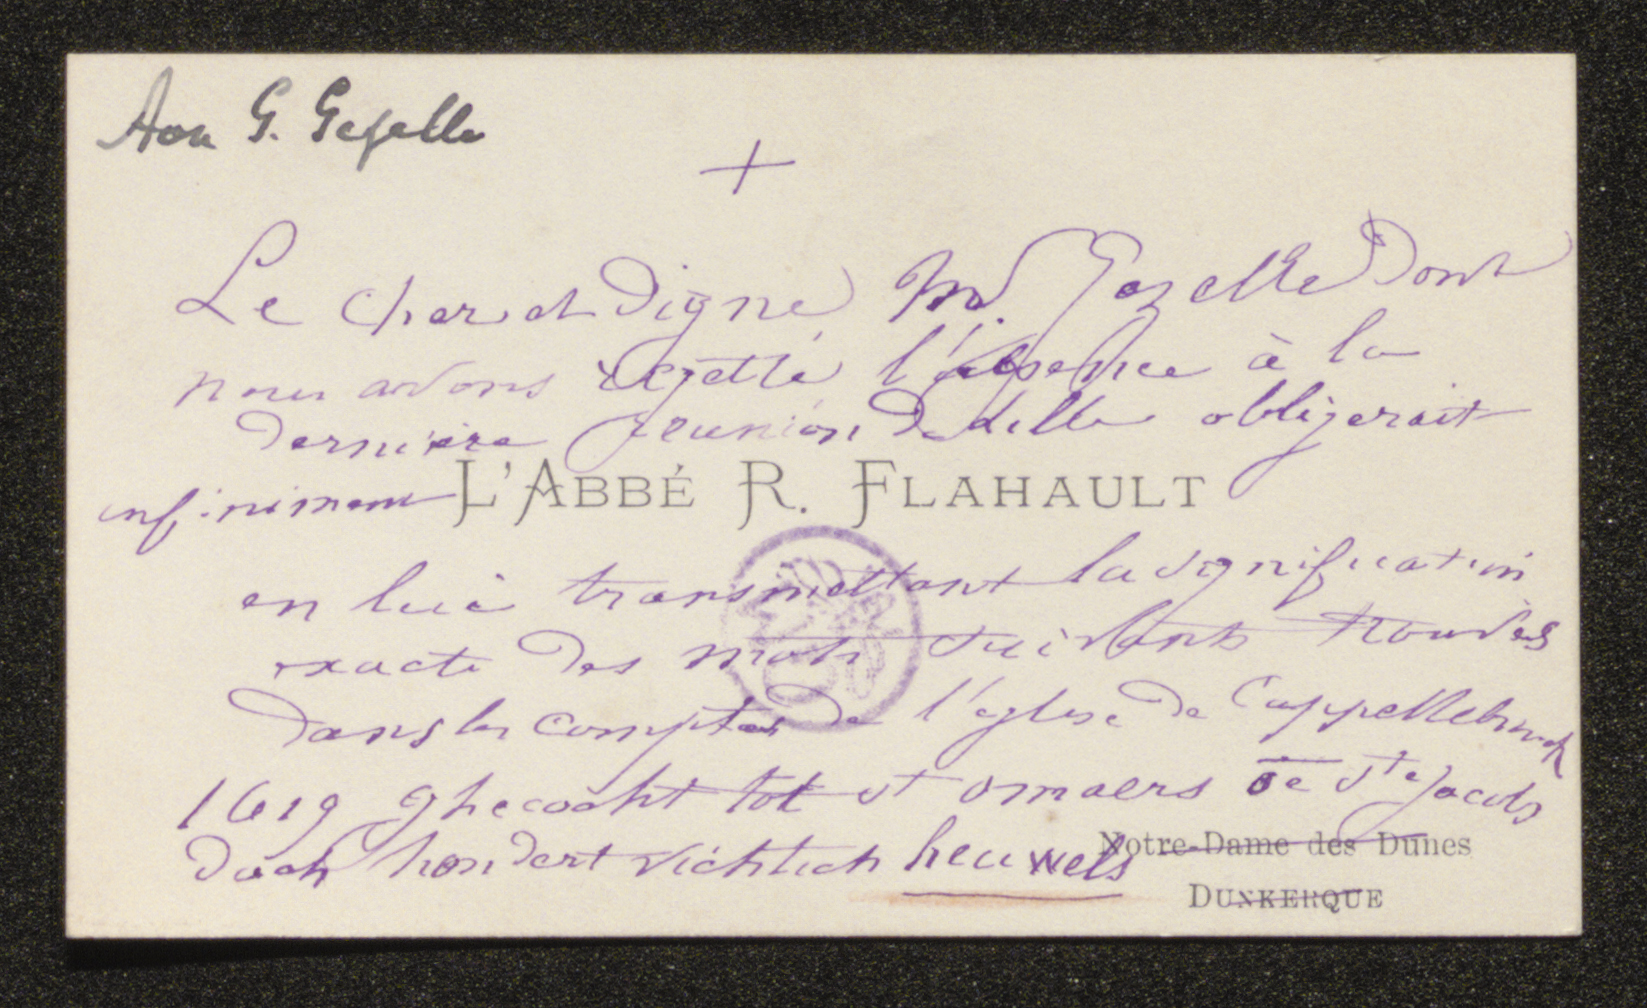 Aan G. Gezelle
+
Le cher et digne Mr. Gezelle dont
nous avons regretté l'absence à la
dernière réunion de Lille obligerait
infiniment L'ABBÉ R. FLAHAULT
en lui transmettant la signification
exacte des mots suivants trouvés
dans les comptes de l'église de Cappellebrouck
1619 ghecocht tot st omaers te Ste Jacobs
dach hondert vichtich heuwels
Notre-Dame des Dunes
DUNKERQUE